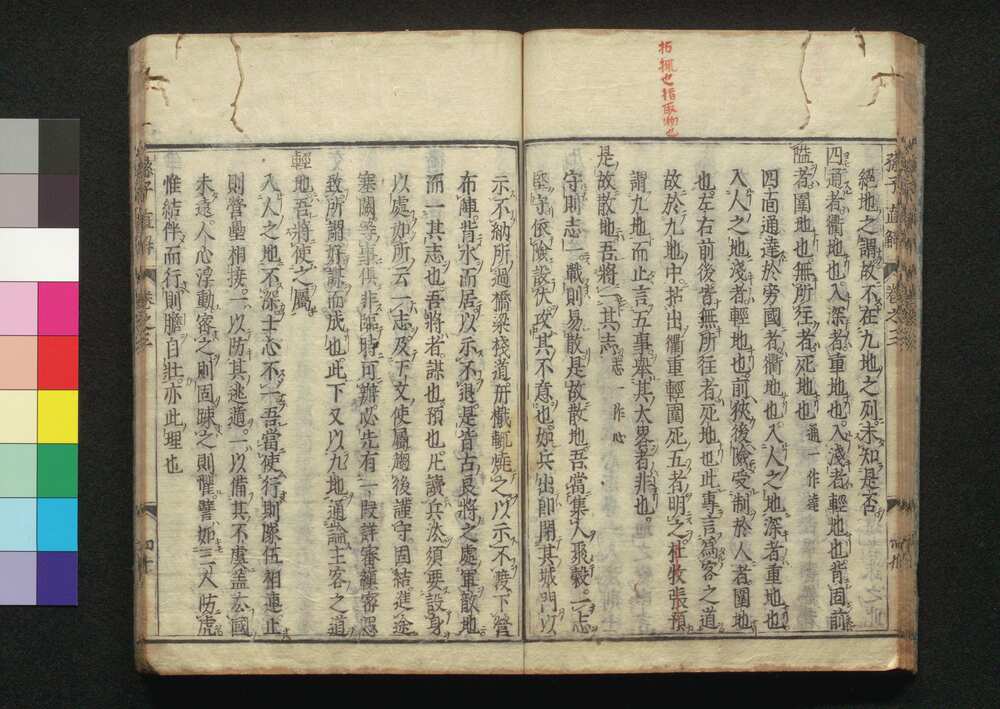 拈撮也指取物也
絕地之謂故不在九地之列未知是否
四通者衢地也入深者重地也入淺者輕地也背固前
隘者圍地也無所往者死地也 通一作達
四面通達於旁國者衢地也入人之地深者重地也
入人之地淺者輕地也前狹後險受制於人者圍地
也左右前後皆無所往者死地也此專言爲客之道
故於九地中拈出衢重輕圍死五者明之杜牧張預
謂九地而止言五事舉其太畧者非也
是故散地吾將一其志 志一作心
守則志一戰則易散是故散地吾當集人聚穀一志
堅守依險設伏攻其不意也如兵出卽閉其城門以
示不納所過橋梁棧道毋懺輒燒之以示不渡下營
布陣背水而居以示不退是皆古良將之處軍散地
而一其志也吾將者謀也預也凡讀兵法須要設身
以處如所云一志及下文使屬趨後謹守固結進途
塞闕等事俱非臨時可辦必先有一段詳審縝密思
致所謂好謀而成也此下又以九地通論主客之道
輕地吾將使之屬
入人之地不深士心不一吾當使行則隊伍相連止
則營壘相接一以防其逃遁一以備其不虞盖去國
未遠人心浮動密之則固疎之則懼譬如二人防虎
惟結伴而行則膽自壯亦此理也
孫子直解 卷之三
四十